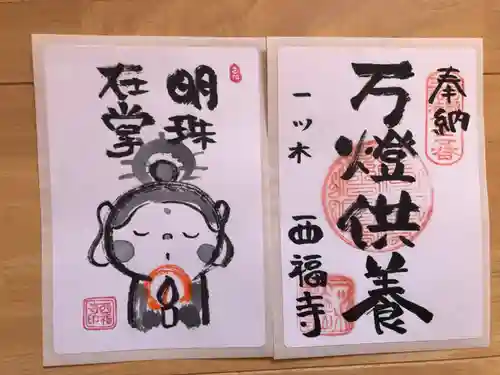 奉納
万燈供養
一ツ木
西福寺
明珠
在掌